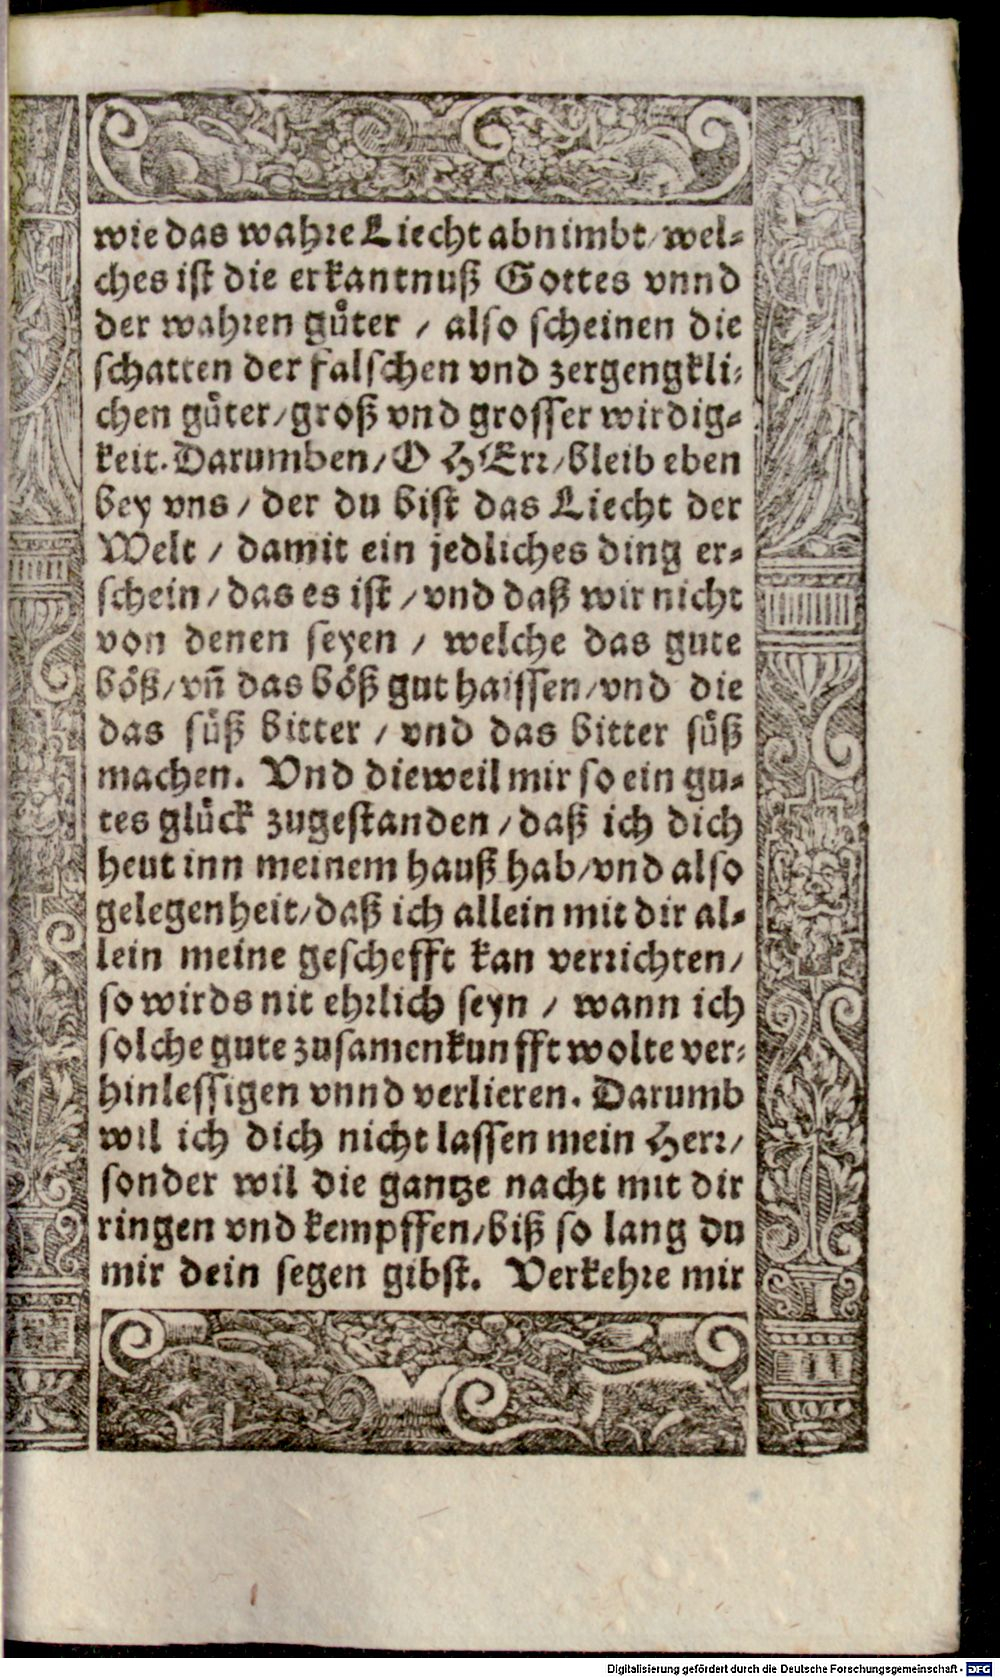 wie das wahre Liecht abnimbt/ wel⸗
ches ist die erkantnuß Gottes vnnd
der wahren guͤter / also scheinen die
schatten der falschen vnd zergengkli⸗
chen guͤter/ groß vnd grosser wirdig⸗
keit. Darumben/ O HErr/ bleib eben
bey vns / der du bist das Liecht der
Welt / damit ein jedliches ding er⸗
schein/ das es ist / vnd daß wir nicht
von denen seyen / welche das gute
boͤß/ vñ das boͤß gut haissen/ vnd die
das suͤß bitter / vnd das bitter suͤß
machen. Vnd dieweil mir so ein gu⸗
tes gluͤck zugestanden / daß ich dich
heut inn meinem hauß hab/ vnd also
gelegenheit/ daß ich allein mit dir al⸗
lein meine geschefft kan verrichten/
so wirds nit ehrlich seyn / wann ich
solche gute zusamenkunfft wolte ver⸗
hinlessigen vnnd verlieren. Darumb
wil ich dich nicht lassen mein Herr/
sonder wil die gantze nacht mit dir
ringen vnd kempffen/ biß so lang du
mir dein segen gibst. Verkehre mir
Digitalisierung gefördert durch die Deutsche Forschungsgemeinschaft - DFG